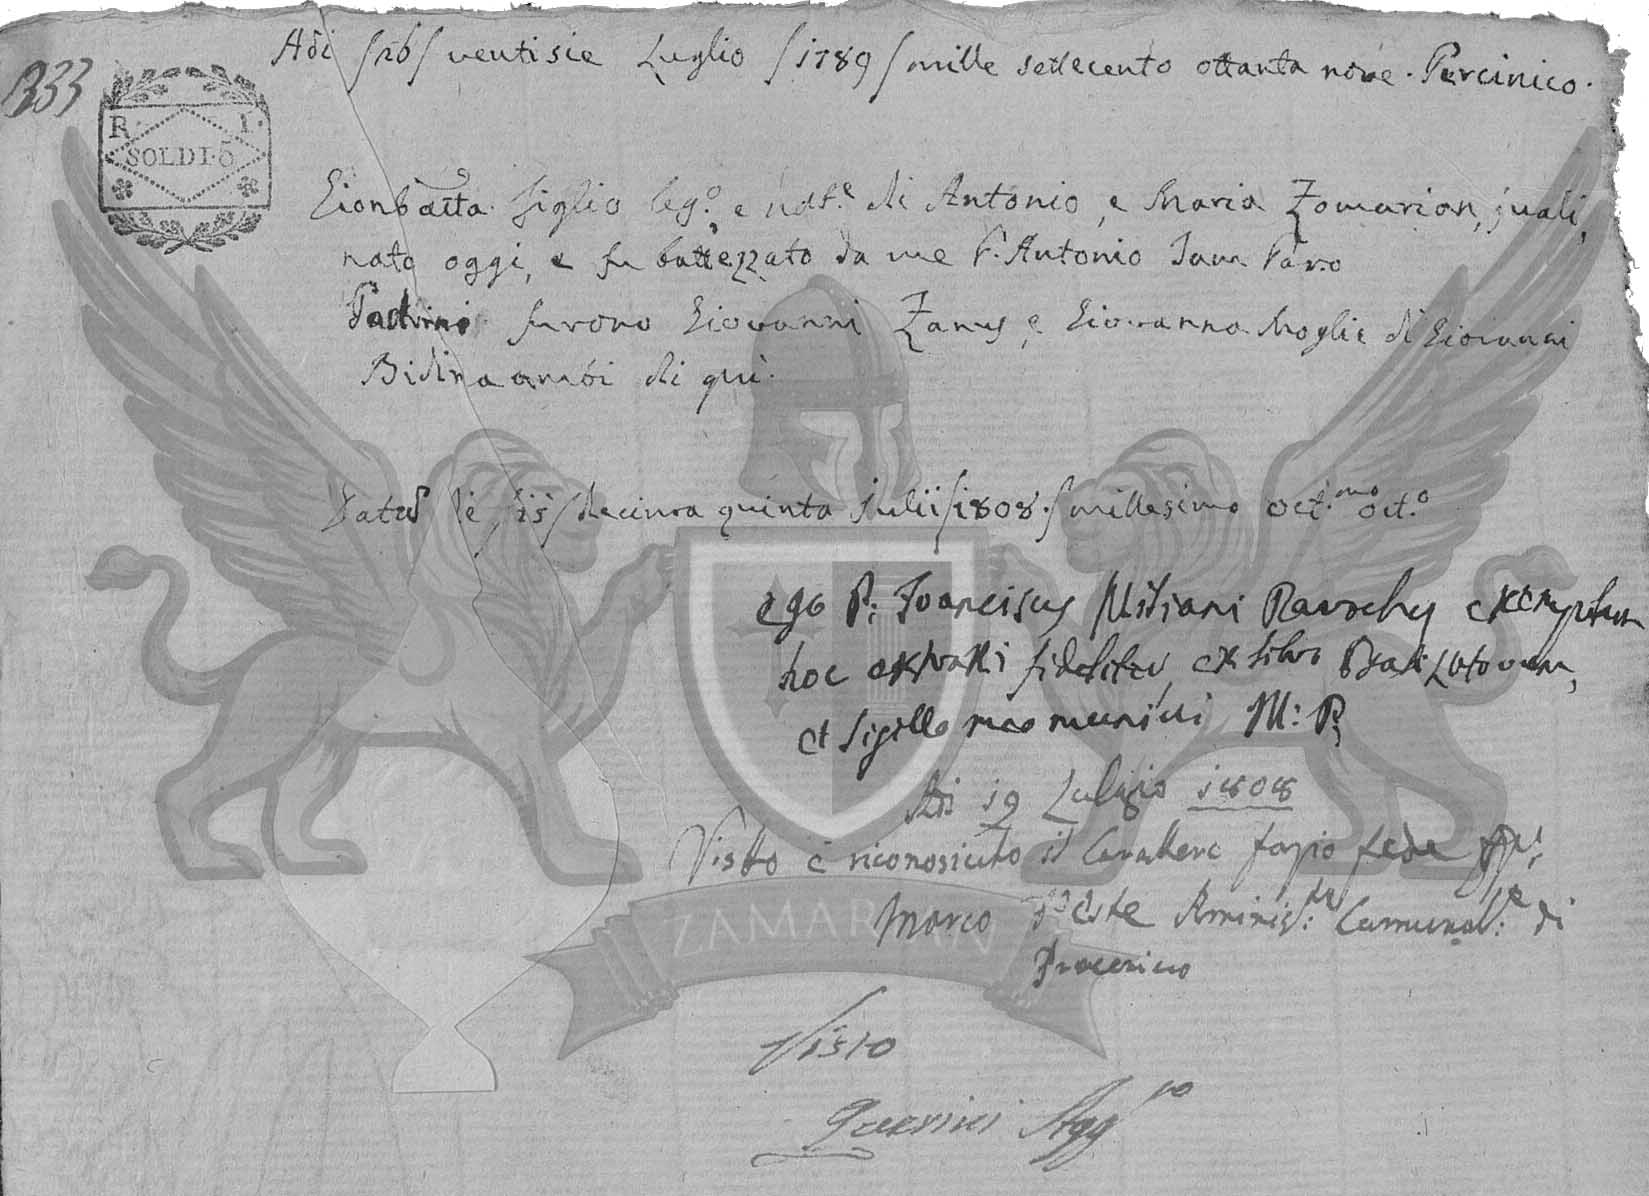 1333
R. I.
SOLDI·5
Adi /26/ ventisie Luglio /1789/ mille settecento ottanta nove. Percinico.
Gionbatta figlio leg.º e nat.e di Antonio, e Maria Zomarian, jugali,
nato oggi, e fu battezzato da me P. Antonio Par.o
Padrini furono Giovanni Zanus, e Giovanna Moglie di Giovanni
Bidina ambi di qui.
Datus die /15/ decima quinta Julii /1808./ millesimo oct.mo oct.o
ego P: Franciscus exemplum
hoc extraxi fideliter ex libro Baptizatorum,
et sigillo meo munivi M: P:
Adi 19 Luglio 1808
Visto e riconosciuto il Carattere faccio fede
Marco Aminis:te Comunal:e di
Precenico
ZAMARIAN
Visto
Agg.to